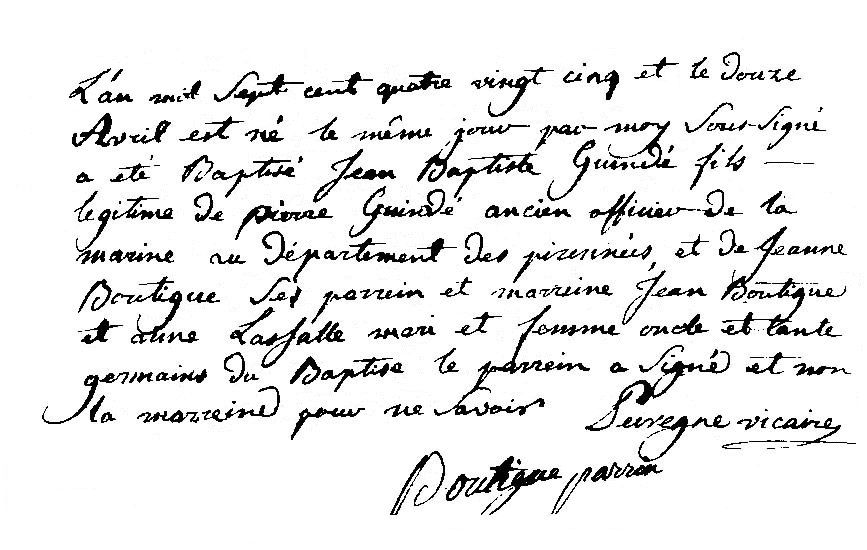 L'an mil Sept cent quatre vingt cinq et le douze
Avril est né le même jour par moy Sous-Signé
a eté Baptisé Jean Baptiste Guindé fils
legitime de pierre Guindé ancien officier de la
marine au département des pirennées, et de Jeanne
Boutique Ses parrein et marreine Jean Boutique
et anne Lassalle mari et femme oncle et tante
germains du Baptise le parrein a Signé et non
la marreine pour ne Savoir vicaire
Boutique parrin